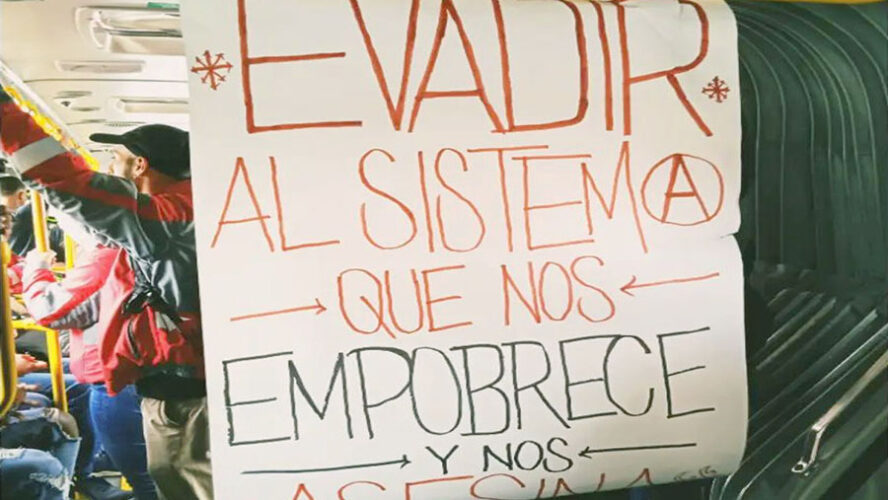 EVADIR
AL SISTEMA
QUE NOS
EMPOBRECE
Y NOS
ASESINA